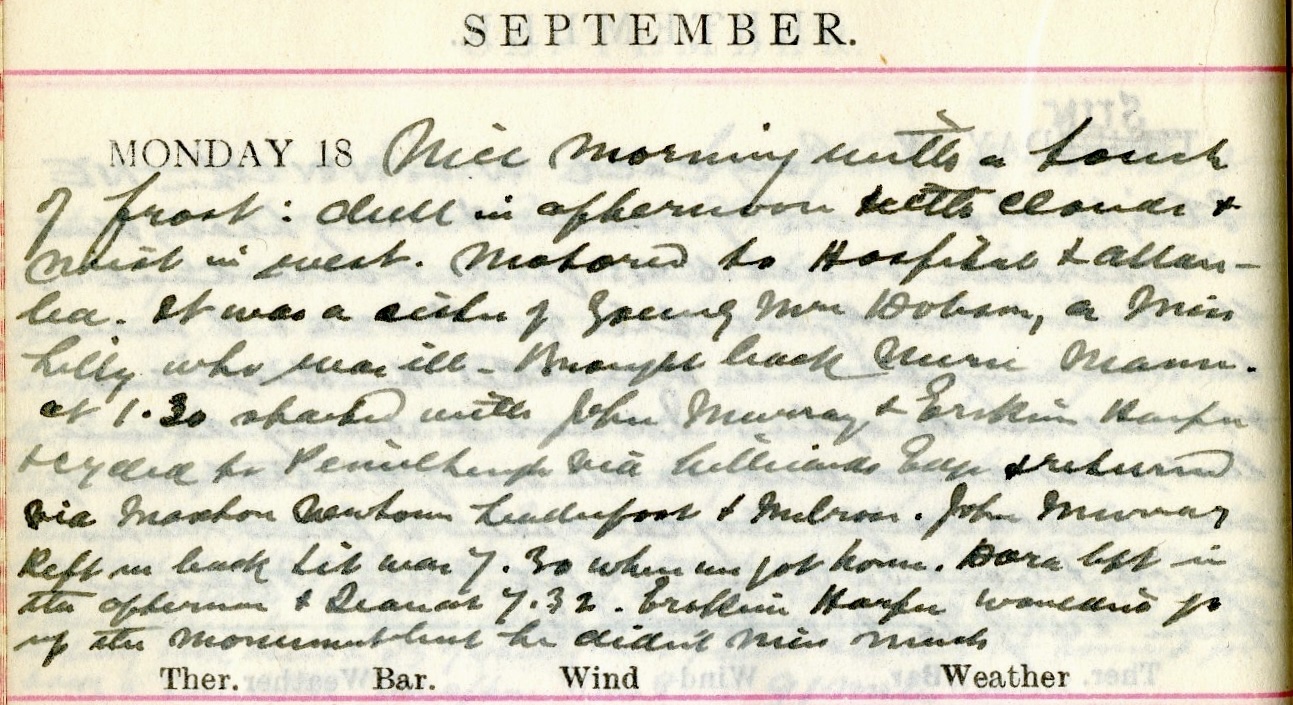 SEPTEMBER.
MONDAY 18 Nice morning with a touch
of frost: dull in afternoon with clouds &
mist in west. Motored to Hospital & Allan-
lea. It was a sister of young Mrs Dobson, a Miss
who was ill - Brought back Nurse Mann.
at 1.30 started with John Murray & Erskine Harper
& cycled to Penielheugh via Lilliards Edge & returned
via Maxton Newtown Leaderfoot & Melrose. John Murray
Kept us back bit was 7.30 when we got home. Dora left in
the afternoon & at 7.32. Erskine Harper wouldn't go
up the monument but he didn't miss much
Ther. Bar. Wind Weather